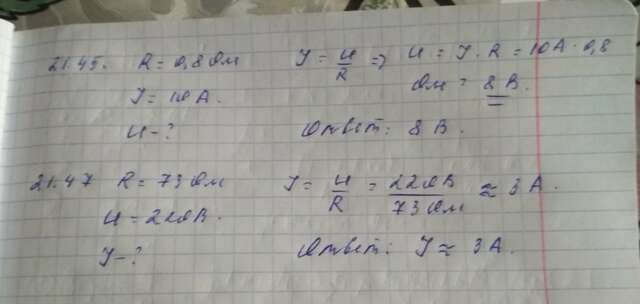 21.45. R = 0,8 Ом
I = 10 А.
U - ?
I = U/R => U = I · R = 10 А · 0,8
Ом = 8 В.
Ответ: 8 В.
21.47 R = 73 Ом
U = 220 В.
I - ?
I = U/R = 220 В/73 Ом ≈ 3 А.
Ответ: I ≈ 3 А.